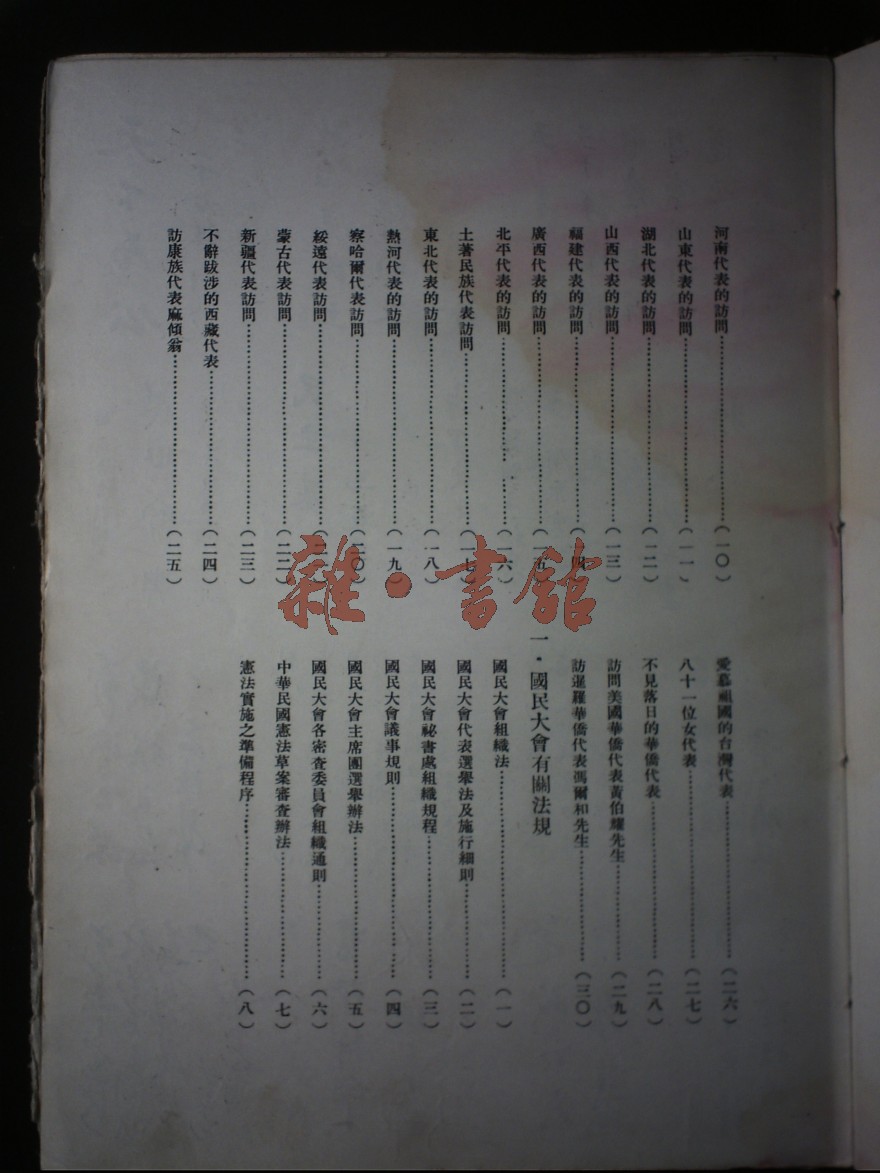 河南代表的訪問(一〇)
山東代表的訪問(一一)
湖北代表的訪問(一二)
山西代表的訪問(一三)
福建代表的訪問(一四)
廣西代表的訪問(一五)
北平代表的訪問(一六)
土著民族代表訪問(一七)
東北代表的訪問(一八)
熱河代表的訪問(一九)
察哈爾代表訪問(二〇)
綏遠代表訪問
蒙古代表訪問(二二)
新疆代表訪問(二三)
不辭跋涉的西藏代表(二四)
訪康族代表麻傾翁(二五)
愛慕祖國的台灣代表(二六)
八十一位女代表(二七)
不見落日的華僑代表(二八)
訪問美國華僑代表黃伯耀先生(二九)
訪暹羅華僑代表馮爾和先生(三〇)
一・國民大會有關法規
國民大會組織法(一)
國民大會代表選舉法及施行細則(二)
國民大會祕書處組織規程(三)
國民大會議事規則(四)
國民大會主席團選舉辦法(五)
國民大會各審查委員會組織通則(六)
中華民國憲法草案審查辦法(七)
憲法實施之準備程序(八)
雜・書館